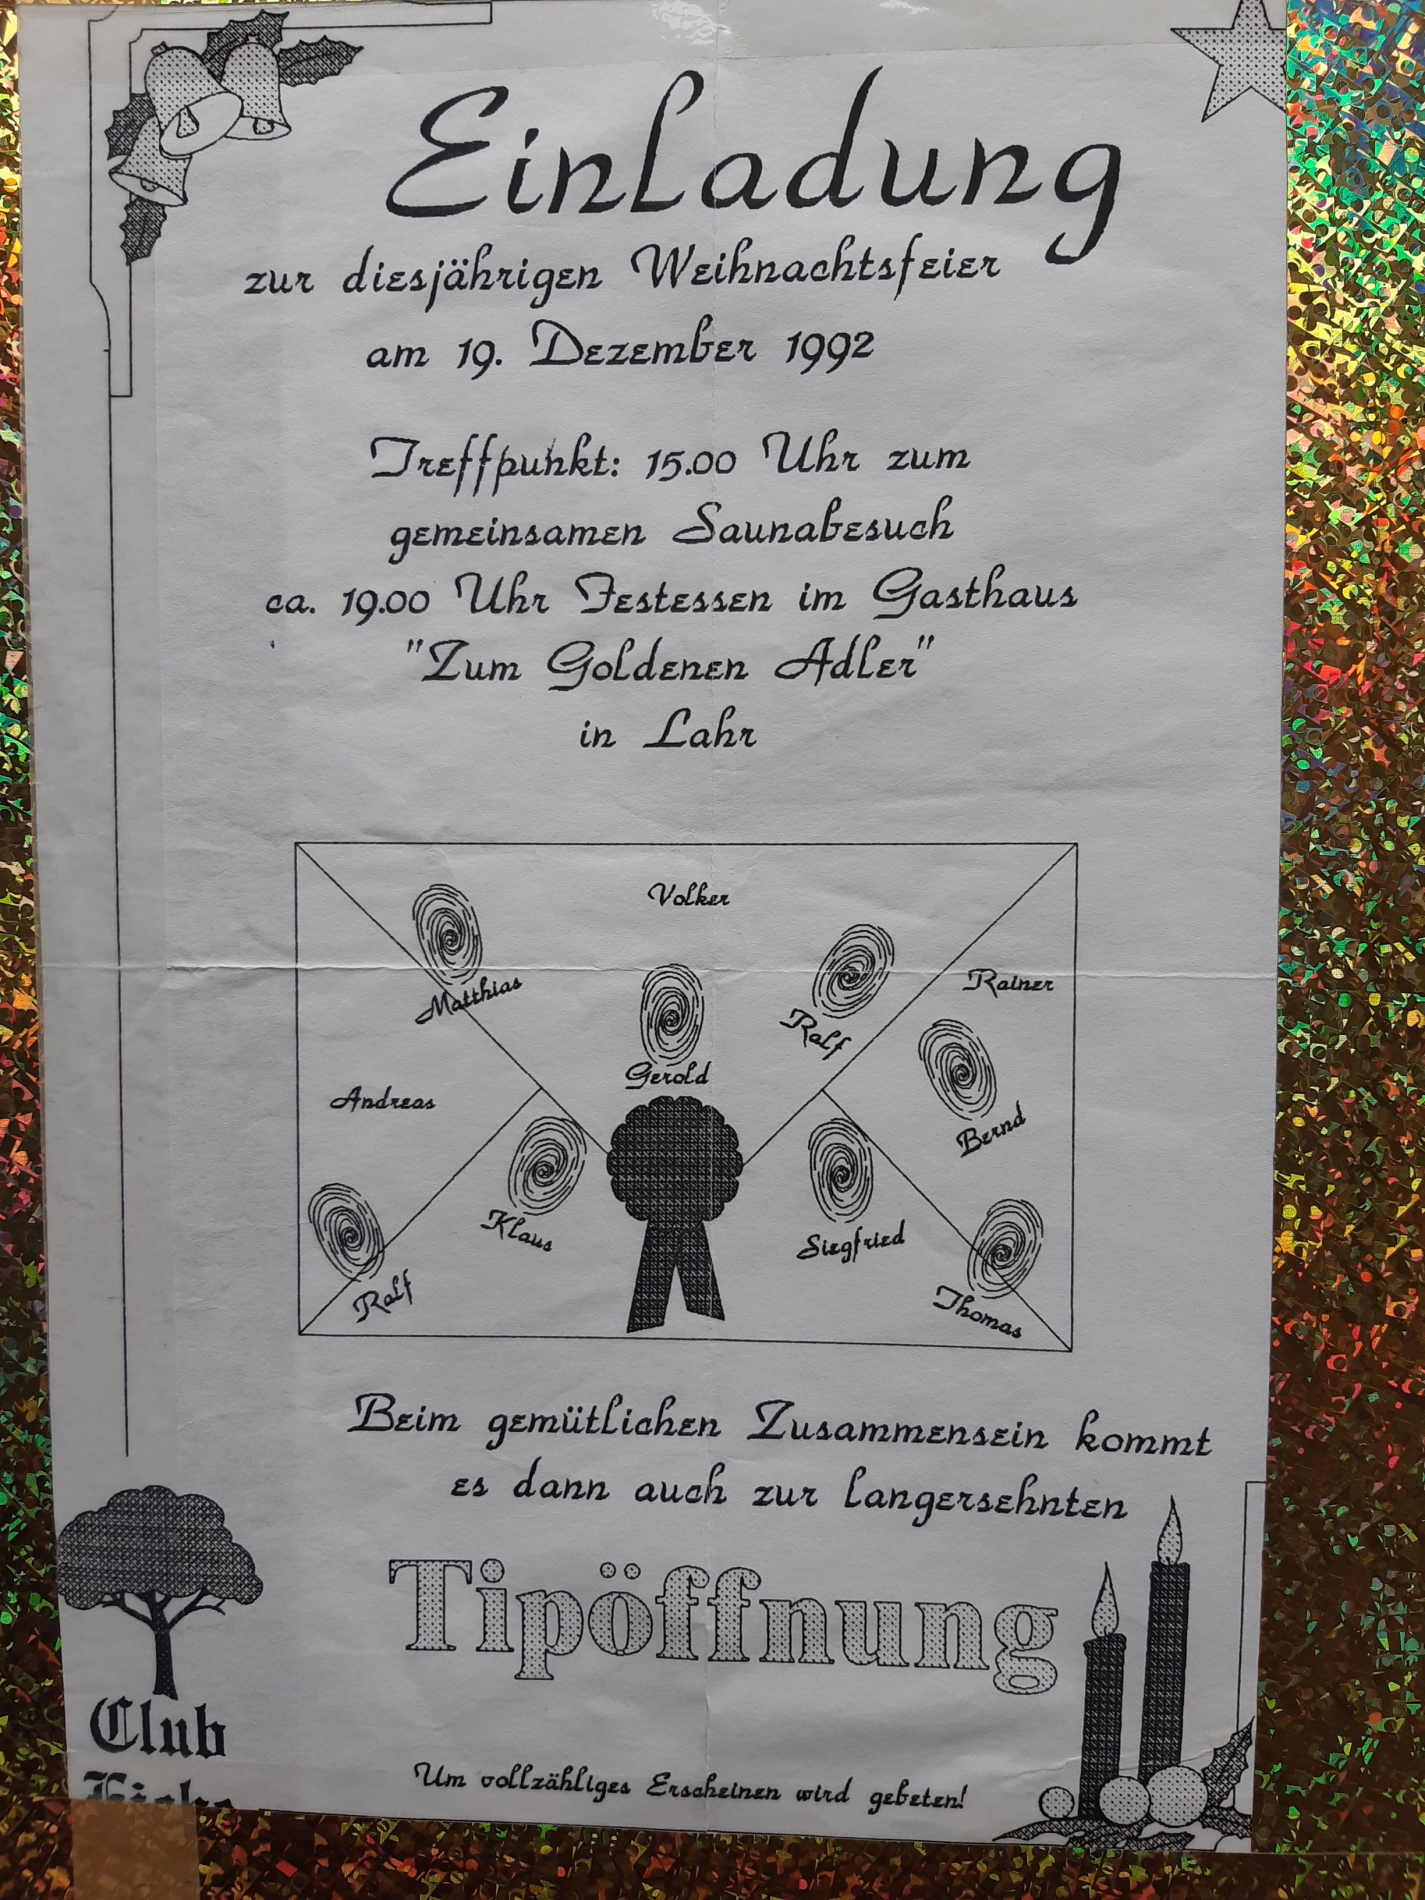 Einladung
zur diesjährigen Weihnachtsfeier
am 19. Dezember 1992
Treffpunkt: 15.00 Uhr zum
gemeinsamen Saunabesuch
ca. 19.00 Uhr Festessen im Gasthaus
"Zum Goldenen Adler"
in Lahr
Volker
Matthias
Rainer
Ralf
Gerold
Andreas
Bernd
Klaus
Siegfried
Ralf
Thomas
Beim gemütlichen Zusammensein kommt
es dann auch zur langersehnten
Tipöffnung
Club
Um vollzähliges Erscheinen wird gebeten!